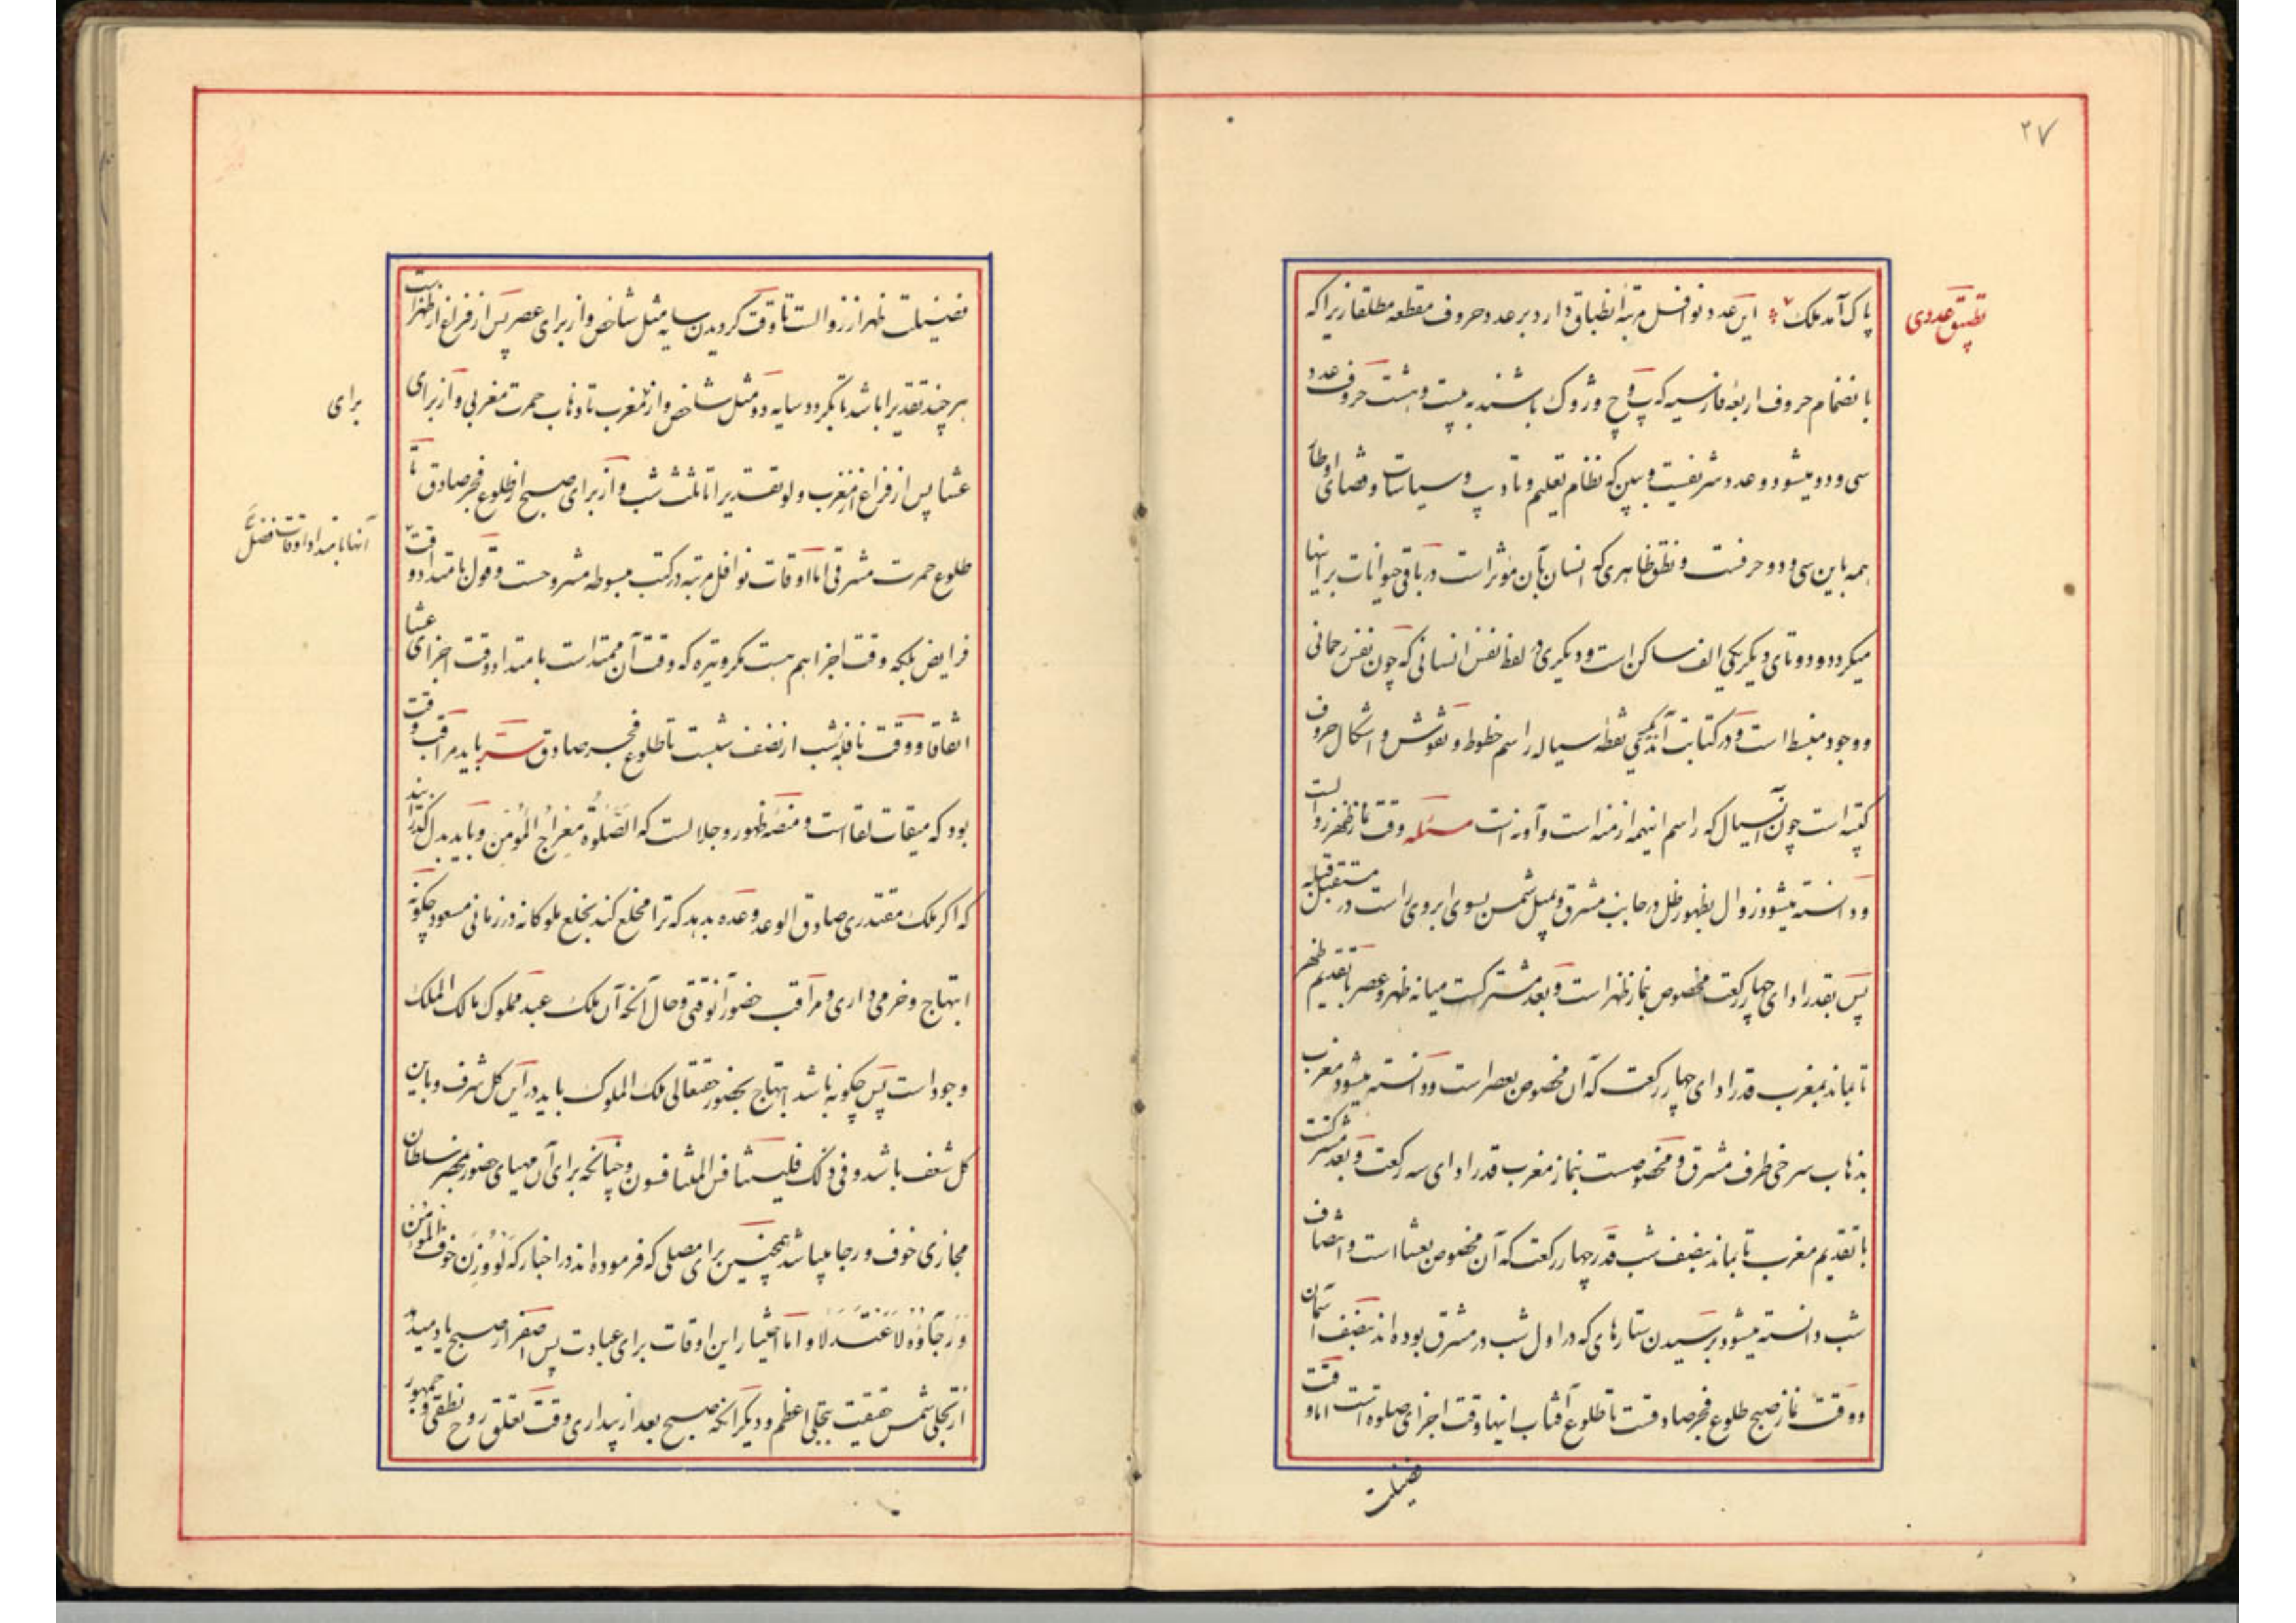 ۲۷
تطبیق عددی
پاک آمد ملک این عدد نوافل مرتبه انطباق دارد بر عدد حروف مقطعه مطلقا زیرا که
با نضمام حروف اربعهٔ فارسیه که پ و چ و ژ و ک باشند به بیست و هشت حروف عدد
سی و دو میشود و عدد شریفیست و ببین که نظام تعلیم و تادیب و سیاسات و قضای اوطار
همه باین سی و دو حرفست و نطق ظاهری که انسان بآن مؤثر است در باقی حیوانات بر اینها
میگردد و دو تای دیگر یکی الف ساکن است و دیگری در لفظ نفس انسانی که چون نفس رحمانی
و وجود منبسط است و در کتابت آن یکی نقطه سیاله راسم خطوط و نقوش و اشکال حروف
کتبیه است چون آن سیال که راسم اینهمه ازمنه است و آونه است مسئله وقت نماز ظهر زوالست
و دانسته میشود زوال بظهور ظل در جانب مشرق و میل شمس بسوی ابروی راست در مستقبل قبله
پس بقدر ادای چهار رکعت مخصوص بنماز ظهر است و بعد مشترکست میانه ظهر و عصر با تقدیم ظهر
تا بماند بمغرب قدر ادای چهار رکعت که آن مخصوص بعصر است و دانسته میشود مغرب
بذهاب سرخی طرف مشرق و مخصوصست بنماز مغرب قدر ادای سه رکعت و بعد مشترکست
با تقدیم مغرب تا بماند بنصف شب قدر چهار رکعت که آن مخصوص بعشا است و انتصاف
شب دانسته میشود برسیدن ستارهای که در اول شب در مشرق بوده اند بنصف آسمان
و وقت نماز صبح طلوع فجر صادقست تا طلوع آفتاب اینها وقت اجزای صلوه است اما وقت
فضیلت
فضیلت ظهر از زوالست تا وقت گردیدن سایه مثل شاخص و از برای عصر پس از فراغ از ظهر است
هر چند تقدیرا باشد تا بگردد سایه دو مثل شاخص و از مغرب تا ذهاب حمرت مغربی و از برای
برای
عشا پس از فراغ از مغرب و لو تقدیرا تا ثلث شب و از برای صبح از طلوع فجر صادق تا
طلوع حمرت مشرقی اما اوقات نوافل مرتبه در کتب مبسوطه مشروحست و قول بامتداد وقت
آنها بامتداد اوقات فضل
فرایض بلکه وقت اجزا هم هست مگر وتیره که وقت آن ممتد است بامتداد وقت اجزای عشا
اتفاقا و وقت نافله شب از نصف شبست تا طلوع فجر صادق سر باید مراقب وقت
بود که میقات لقا است و منصه ظهور و جلالست که الصلوة معراج المؤمن و باید بدل گذرانید
که اگر ملک مقتدری صادق الوعد وعده بدهد که ترا مخلع کند بخلع ملوکانه در زمانی مسعود چگونه
ابتهاج و خرمی داری و مراقب حضور آنوقتی و حال آنکه آن ملک عبد مملوک مالک الملک
وجود است پس چگونه باشد ابتهاج بحضور حقتعالی ملک الملوک باید در این کل شرف و باین
کل شعف باشد و فی ذلک فلیتنافس المتنافسون و چنانچه برای آن مهیای حضور بمحضر سلطان
مجازی خوف و رجا میباشد همچنین برای مصلی که فرموده اند در اخبار که لو وزن خوف المؤمن
و رجاؤه لاعتدلا و اما اختیار این اوقات برای عبادت پس صفر از صبح یاد میدهد
از تجلی شمس حقیقت بتجلی اعظم و دیگر آنکه صبح بعد از بیداری وقت تعلق روح نطقی و جمهور